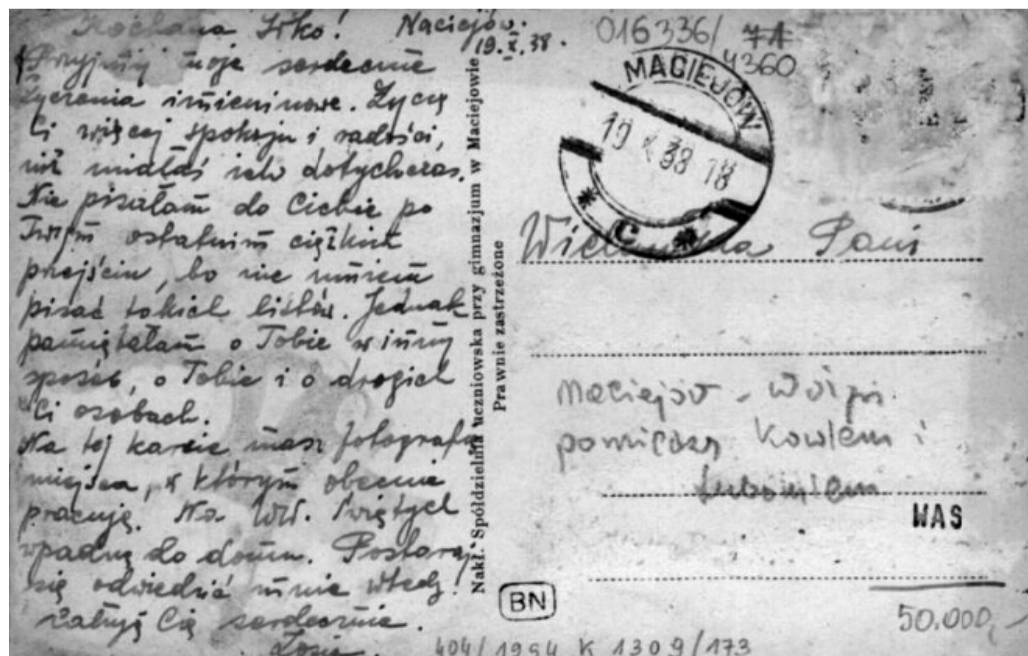 Kochana Irko! Maciejów.
19.X.38.
Przyjmij moje serdeczne
życzenia imieninowe. Życzę
Ci więcej spokoju i radości,
niż miałaś ich dotychczas.
Nie pisałam do Ciebie po
Twym ostatnim ciężkim
przejściu, bo nie umiem
pisać takich listów. Jednak
pamiętałam o Tobie w inny
sposób, o Tobie i o drogich
Ci osobach.
Na tej karcie masz fotografię
miejsca, w którym obecnie
pracuję. Na WW. Świętych
wpadnę do domu. Postaraj
się odwiedzić mnie wtedy.
Całuję Cię serdecznie.
Zosia.
Nakł. Spółdzielnia uczniowska przy gimnazjum w Maciejowie
Prawnie zastrzeżone
016336/ 71
4360
MACIEJÓW
19 X 38 18
* C *
Wielmożna Pani
Maciejów - Wołyń
pomiędzy Kowlem i
Lubomlem
WAS
BN
50.000,-
404/1994 K 1309/173